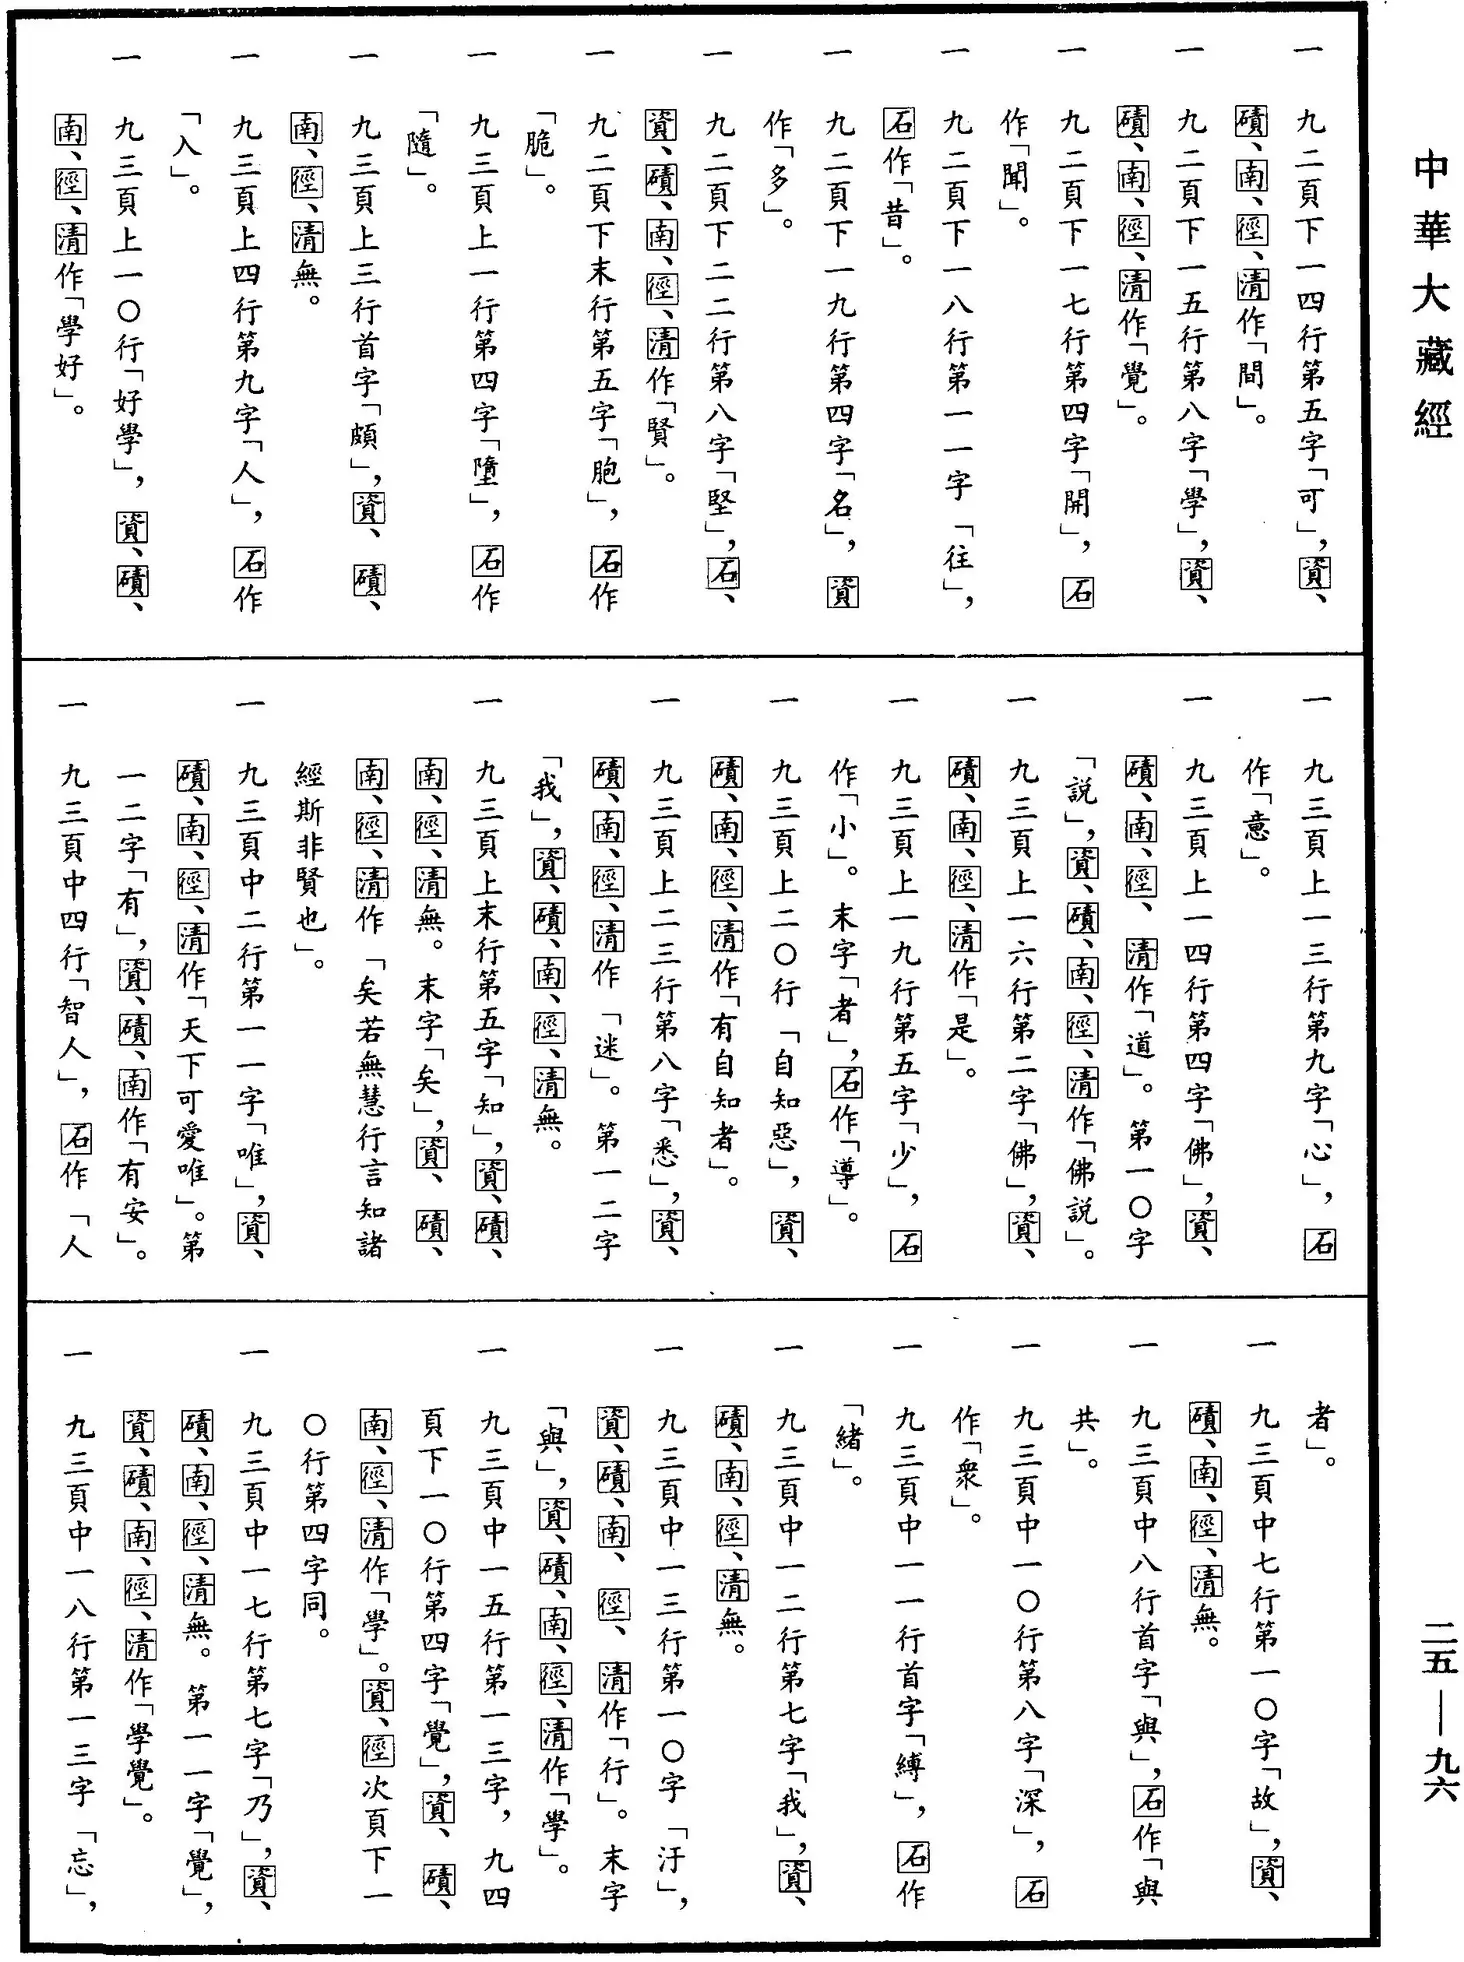 中華大藏經
一 九二頁下一四行第五字「可」，資、
磧、南、徑、清作「間」。
一 九二頁下一五行第八字「學」，資、
磧、南、徑、清作「覺」。
一 九二頁下一七行第四字「開」，石
作「聞」。
一 九二頁下一八行第一一字「往」，
石作「昔」。
一 九二頁下一九行第四字「名」，資
作「多」。
一 九二頁下二二行第八字「堅」，石、
資、磧、南、徑、清作「賢」。
一 九二頁下末行第五字「胞」，石作
「脆」。
一 九三頁上一行第四字「墮」，石作
「隨」。
一 九三頁上三行首字「頗」，資、磧、
南、徑、清無。
一 九三頁上四行第九字「人」，石作
「入」。
一 九三頁上一〇行「好學」，資、磧、
南、徑、清作「學好」。
一 九三頁上一三行第九字「心」，石
作「意」。
一 九三頁上一四行第四字「佛」，資、
磧、南、徑、清作「道」。第一〇字
「説」，資、磧、南、徑、清作「佛説」。
一 九三頁上一六行第二字「佛」，資、
磧、南、徑、清作「是」。
一 九三頁上一九行第五字「少」，石
作「小」。末字「者」，石作「導」。
一 九三頁上二〇行「自知惡」，資、
磧、南、徑、清作「有自知者」。
一 九三頁上二三行第八字「悉」，資、
磧、南、徑、清作「迷」。第一二字
「我」，資、磧、南、徑、清無。
一 九三頁上末行第五字「知」，資、磧、
南、徑、清無。末字「矣」，資、磧、
南、徑、清作「矣若無慧行言知諸
經斯非賢也」。
一 九三頁中二行第一一字「唯」，資、
磧、南、徑、清作「天下可愛唯」。第
一二字「有」，資、磧、南作「有安」。
一 九三頁中四行「智人」，石作「人
者」。
一 九三頁中七行第一〇字「故」，資、
磧、南、徑、清無。
一 九三頁中八行首字「與」，石作「與
共」。
一 九三頁中一〇行第八字「深」，石
作「衆」。
一 九三頁中一一行首字「縛」，石作
「緒」。
一 九三頁中一二行第七字「我」，資、
磧、南、徑、清無。
一 九三頁中一三行第一〇字「汙」，
資、磧、南、徑、清作「行」。末字
「與」，資、磧、南、徑、清作「學」。
一 九三頁中一五行第一三字，九四
頁下一〇行第四字「覺」，資、磧、
南、徑、清作「學」。資、徑次頁下一
〇行第四字同。
一 九三頁中一七行第七字「乃」，資、
磧、南、徑、清無。第一一字「覺」，
資、磧、南、徑、清作「學覺」。
一 九三頁中一八行第一三字「忘」，
二五—九六